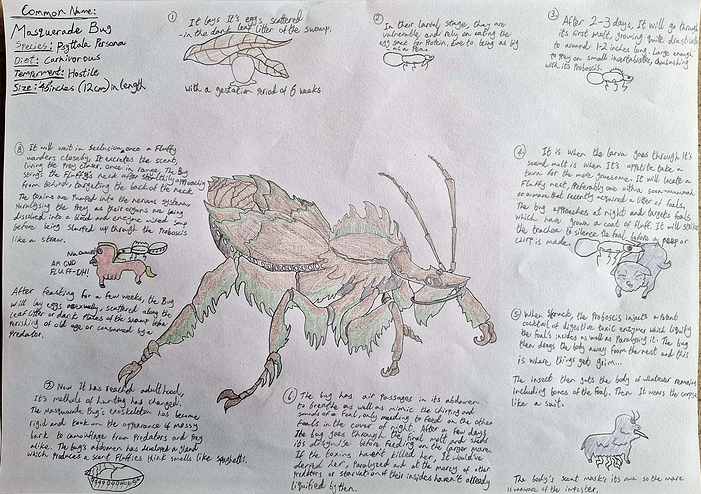 Common Name:
Masquerade Bug
Species: Pigttala Persona
Diet: Carnivorous
Temperment: Hostile
Size: 4.5 inches (12cm) in length
① It lays it's eggs scattered
in the dark leaf litter of the swamp,
with a gestation period of 6 weeks
② In their larval stage, they are
vulnerable and rely on eating the
egg sack for protein, due to being as big
as a pea.
③ After 2-3 days, it will go through
its first molt, growing quite drastically
to around 1-2 inches long. Large enough
to prey on small invertabrates,
with its Proboscis.
④ It is when the larva goes through it's
second molt is when it's appetite take a
turn for the more gruesome. It will locate a
Fluffy nest, Preferably one with a soon-mummah
or a mumah that recently acquired a litter of foals.
The bug approaches at night and targets foals
which have grown a coat of fluff. It will strike
the trachea to silence the foal before a peep or
chirp is made.
⑤ When struck, the Proboscis injects a potent
cocktail of digestive toxic enzymes which liquify
the foals insides as well as Paralysing it. The bug
then drags the body away from the nest and this
is where things get grim...
The insect then guts the body of whatever remains
including bones of the foal. Then it wears the corpse
like a suit.
The body's scent masks its own so the mare
is unaware of the imposter.
⑥ The bug has air passages in its abdomen
to breathe as well as mimic the chirping and
sounds of a foal, only needing to feed on the other
foals in the cover of night. After a few days
the bug goes through the final molt and sheds
its disguise before feeding on the larger mare.
If the toxins haven't killed her, it would've
left her, Paralyzed out at the mercy of other
predators or starvation if their insides haven't already
liquified by then.
⑦ Now it has reached adulthood,
it's methods of hunting has changed.
The Masquerade Bug's exoskeleton has become
rigid and took on the appearance of mossy
bark to camoflage from predators and prey
alike. The bug's abdomen has developed a gland
which produces a scent Fluffies think smells like spaghetti.
⑧ It will wait in seclusion, once a Fluffy
wanders closeby, It excretes the scent,
luring the prey closer. once in range, The Bug
stings the Fluffy's neck after stealthily approaching
from behind, targeting the back of the neck.
The toxins are Pumped into the nervous system,
Paralysing the prey as their organs are being
dissolved into a liquid and enzyme mixed soup
before being slurped up through the Proboscis
like a straw.
FLUFF-OH!
After feasting for a few weeks, the Bug
will lay eggs asexually, scattered along the
leaf litter or dark places of the swamp before
perishing of old age or consumed by a
Predator.